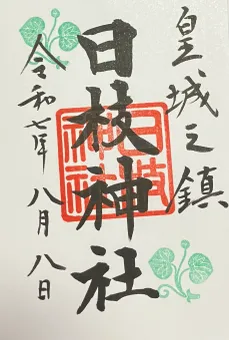 皇城之鎮
日枝神社
日枝神社
令和七年 八月八日